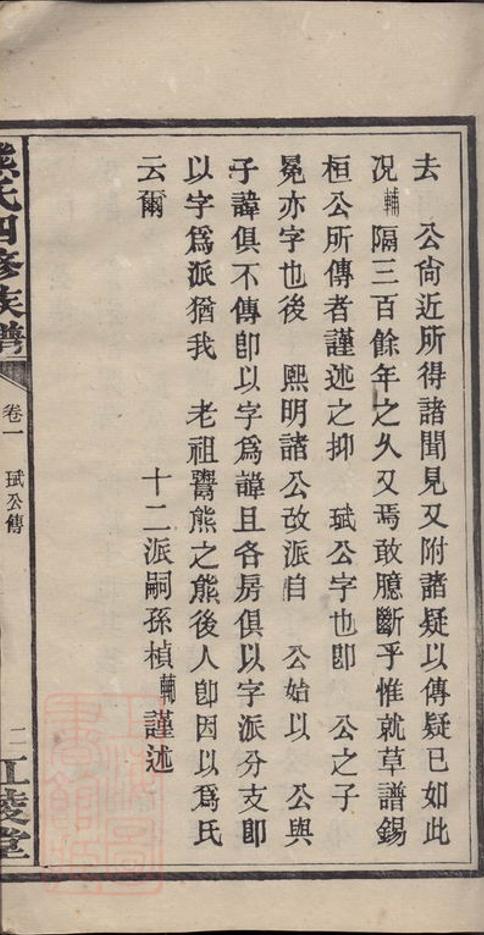 去　公尙近所得諸聞見又附諸疑以傳疑已如此
况輔隔三百餘年之久又焉敢臆斷乎惟就草譜錫
桓公所傳者謹述之抑　珷公字也卽　公之子
冕亦字也後　熙明諸公改派自　公始以　公與
子諱俱不傳卽以字爲諱且各房俱以字派分支卽
以字爲派猶我　老祖鬻熊之熊後人卽因以爲氏
云爾
十二派嗣孫楨輔謹述
熊氏四修族譜
卷一　珷公傳
二
江陵堂